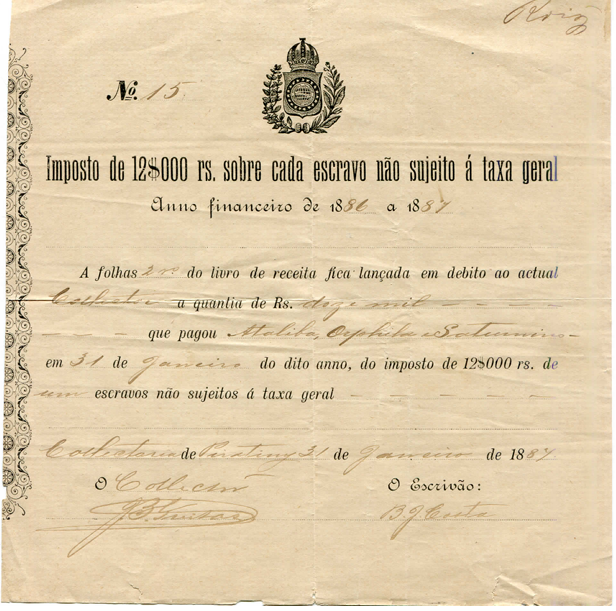 Nº 15.
Imposto de 12$000 rs. sobre cada escravo não sujeito á taxa geral
Anno financeiro de 1886 a 1887
A folhas do livro de receita fica lançada em debito ao actual
Collector a quantia de Rs. doze mil
que pagou Ataliba, e Saturnino
em 31 de Janeiro do dito anno, do imposto de 12$000 rs. de
um escravos não sujeitos á taxa geral
Collectoria de Piratiny 31 de Janeiro de 1887
O Collector O Escrivão:
B J Costa